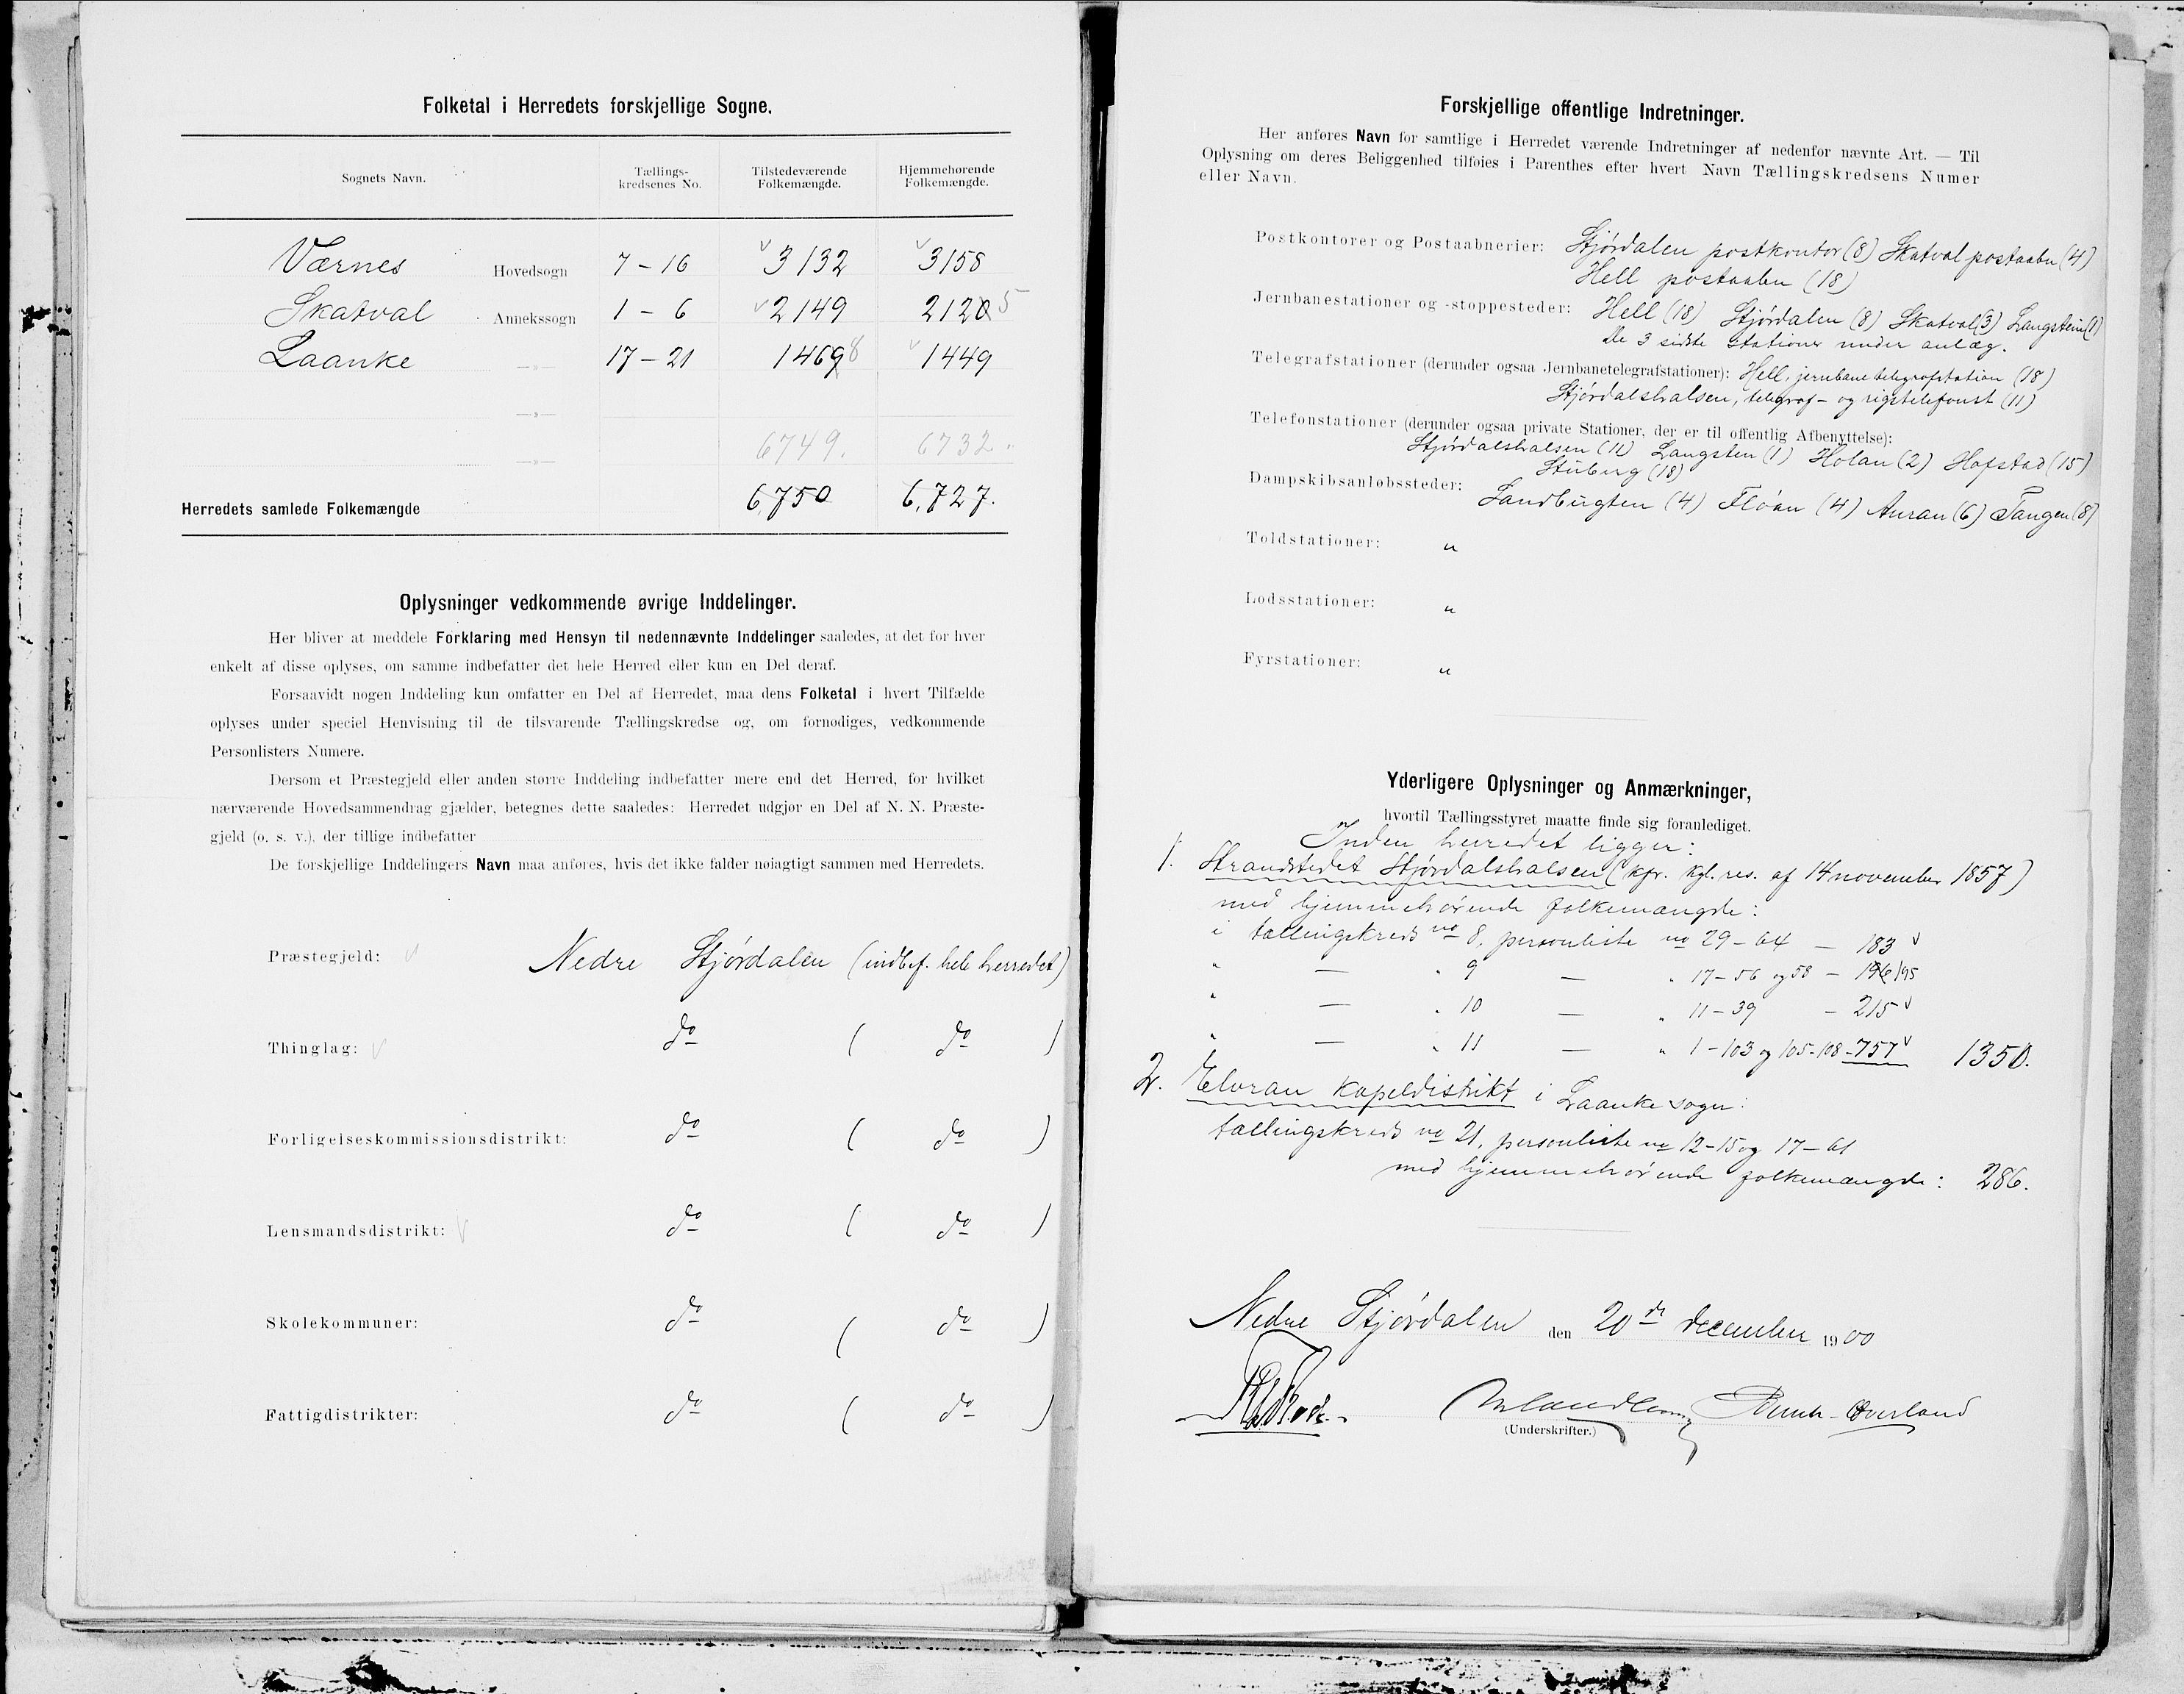 Folketal i Herredets forskjellige Sogne.
Sognets Navn. Tællings-kredsenes No. Tilstedeværende Folkemængde. Hjemmehørende Folkemængde.
Værnes Hovedsogn 7 – 16 3132 3158
Skatval Annekssogn 1 – 6 2149 2120 5
Laanke —»— 17 – 21 1469 8 1449
—»—
6749. 6732
—»—
Herredets samlede Folkemængde 6,750 6,727.
Oplysninger vedkommende øvrige Inddelinger.
Her bliver at meddele Forklaring med Hensyn til nedennævnte Inddelinger saaledes, at det for hver
enkelt af disse oplyses, om samme indbefatter det hele Herred eller kun en Del deraf.
Forsaavidt nogen Inddeling kun omfatter en Del af Herredet, maa dens Folketal i hvert Tilfælde
oplyses under speciel Henvisning til de tilsvarende Tællingskredse og, om fornødiges, vedkommende
Personlisters Numere.
Dersom et Præstegjeld eller anden større Inddeling indbefatter mere end det Herred, for hvilket
nærværende Hovedsammendrag gjælder, betegnes dette saaledes: Herredet udgjør en Del af N. N. Præste-
gjeld (o. s. v.), der tillige indbefatter
De forskjellige Inddelingers Navn maa anføres, hvis det ikke falder nøiagtigt sammen med Herredets.
Præstegjeld: Nedre Stjørdalen (indbef. hele herredet)
Thinglag: do ( do )
Forligelseskommissionsdistrikt: do ( do )
Lensmandsdistrikt: do ( do )
Skolekommuner: do ( do )
Fattigdistrikter: do ( do )
Forskjellige offentlige Indretninger.
Her anføres Navn for samtlige i Herredet værende Indretninger af nedenfor nævnte Art. — Til
Oplysning om deres Beliggenhed tilføies i Parenthes efter hvert Navn Tællingskredsens Numer
eller Navn.
Postkontorer og Postaabnerier: Stjørdalen postkontor (8) Skatval postaabn (4)
Hell postaabn (18)
Jernbanestationer og -stoppesteder: Hell (18) Stjørdalen (8) Skatval (3) Langstein (1)
De 3 sidste stationer under anlæg.
Telegrafstationer (derunder ogsaa Jernbanetelegrafstationer): Hell, jernbanetelegrafstation (18)
Stjørdalshalsen, telegraf- og rigstelefonst (11)
Telefonstationer (derunder ogsaa private Stationer, der er til offentlig Afbenyttelse):
Stjørdalshalsen (11) Langsten (1) Holan (2) Hofstad (15)
Stuberg (18)
Dampskibsanløbssteder: Sandbugten (4) Floan (4) Auran (6) Tangen (8)
Toldstationer: "
Lodsstationer: "
Fyrstationer: "
Yderligere Oplysninger og Anmærkninger,
hvortil Tællingsstyret maatte finde sig foranlediget.
Inden herredet ligger:
1. Strandstedet Stjørdalshalsen (kfr. kgl. res. af 14 november 1857)
med hjemmehørende folkemængde:
i tællingskreds no 8, personliste no 29 – 64 — 183
" — " 9 — " 17 – 56 og 58 – 196 195
" — " 10 — " 11 – 39 – 215
" — " 11 — " 1 – 103 og 105-108 – 757 1350.
2. Elvran kapeldistrikt i Laanke sogn:
tællingskreds no 21, personliste no 12 – 15 og 17 – 61
med hjemmehørende folkemængde: 286.
Nedre Stjørdalen den 20de december 1900
Overland
(Underskrifter.)